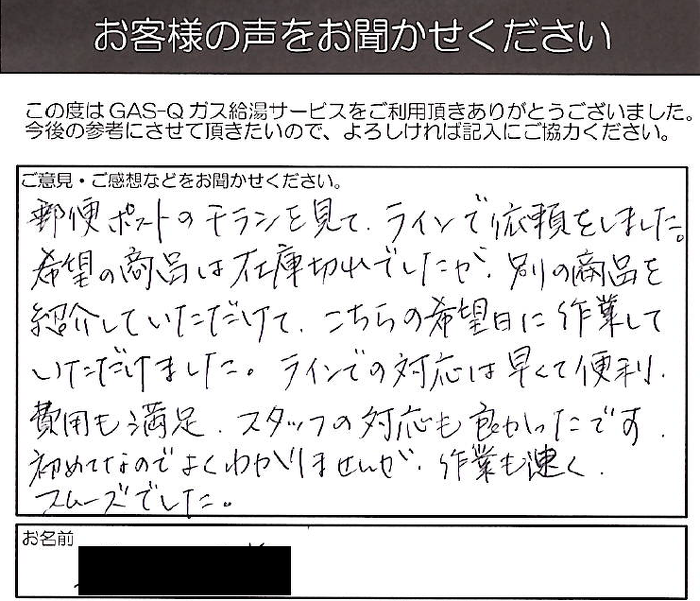 お客様の声をお聞かせください
この度はGAS-Qガス給湯サービスをご利用頂きありがとうございました。
今後の参考にさせて頂きたいので、よろしければ記入にご協力ください。
ご意見・ご感想などをお聞かせください。
郵便ポストのチランを見て、ラインで依頼をしました。
希望の商品は在庫切れでしたが、別の商品を
紹介していただけて、こちらの希望日に作業して
いただけました。ラインでの対応は早くて便利、
費用も満足、スタッフの対応も良かったです、
初めてなのでよくわかりませんが、作業も速く、
スムーズでした。
お名前